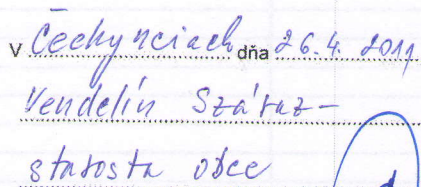 V Čechynciach dňa 26.4. 2011
Vendelín Száraz -
starosta obce